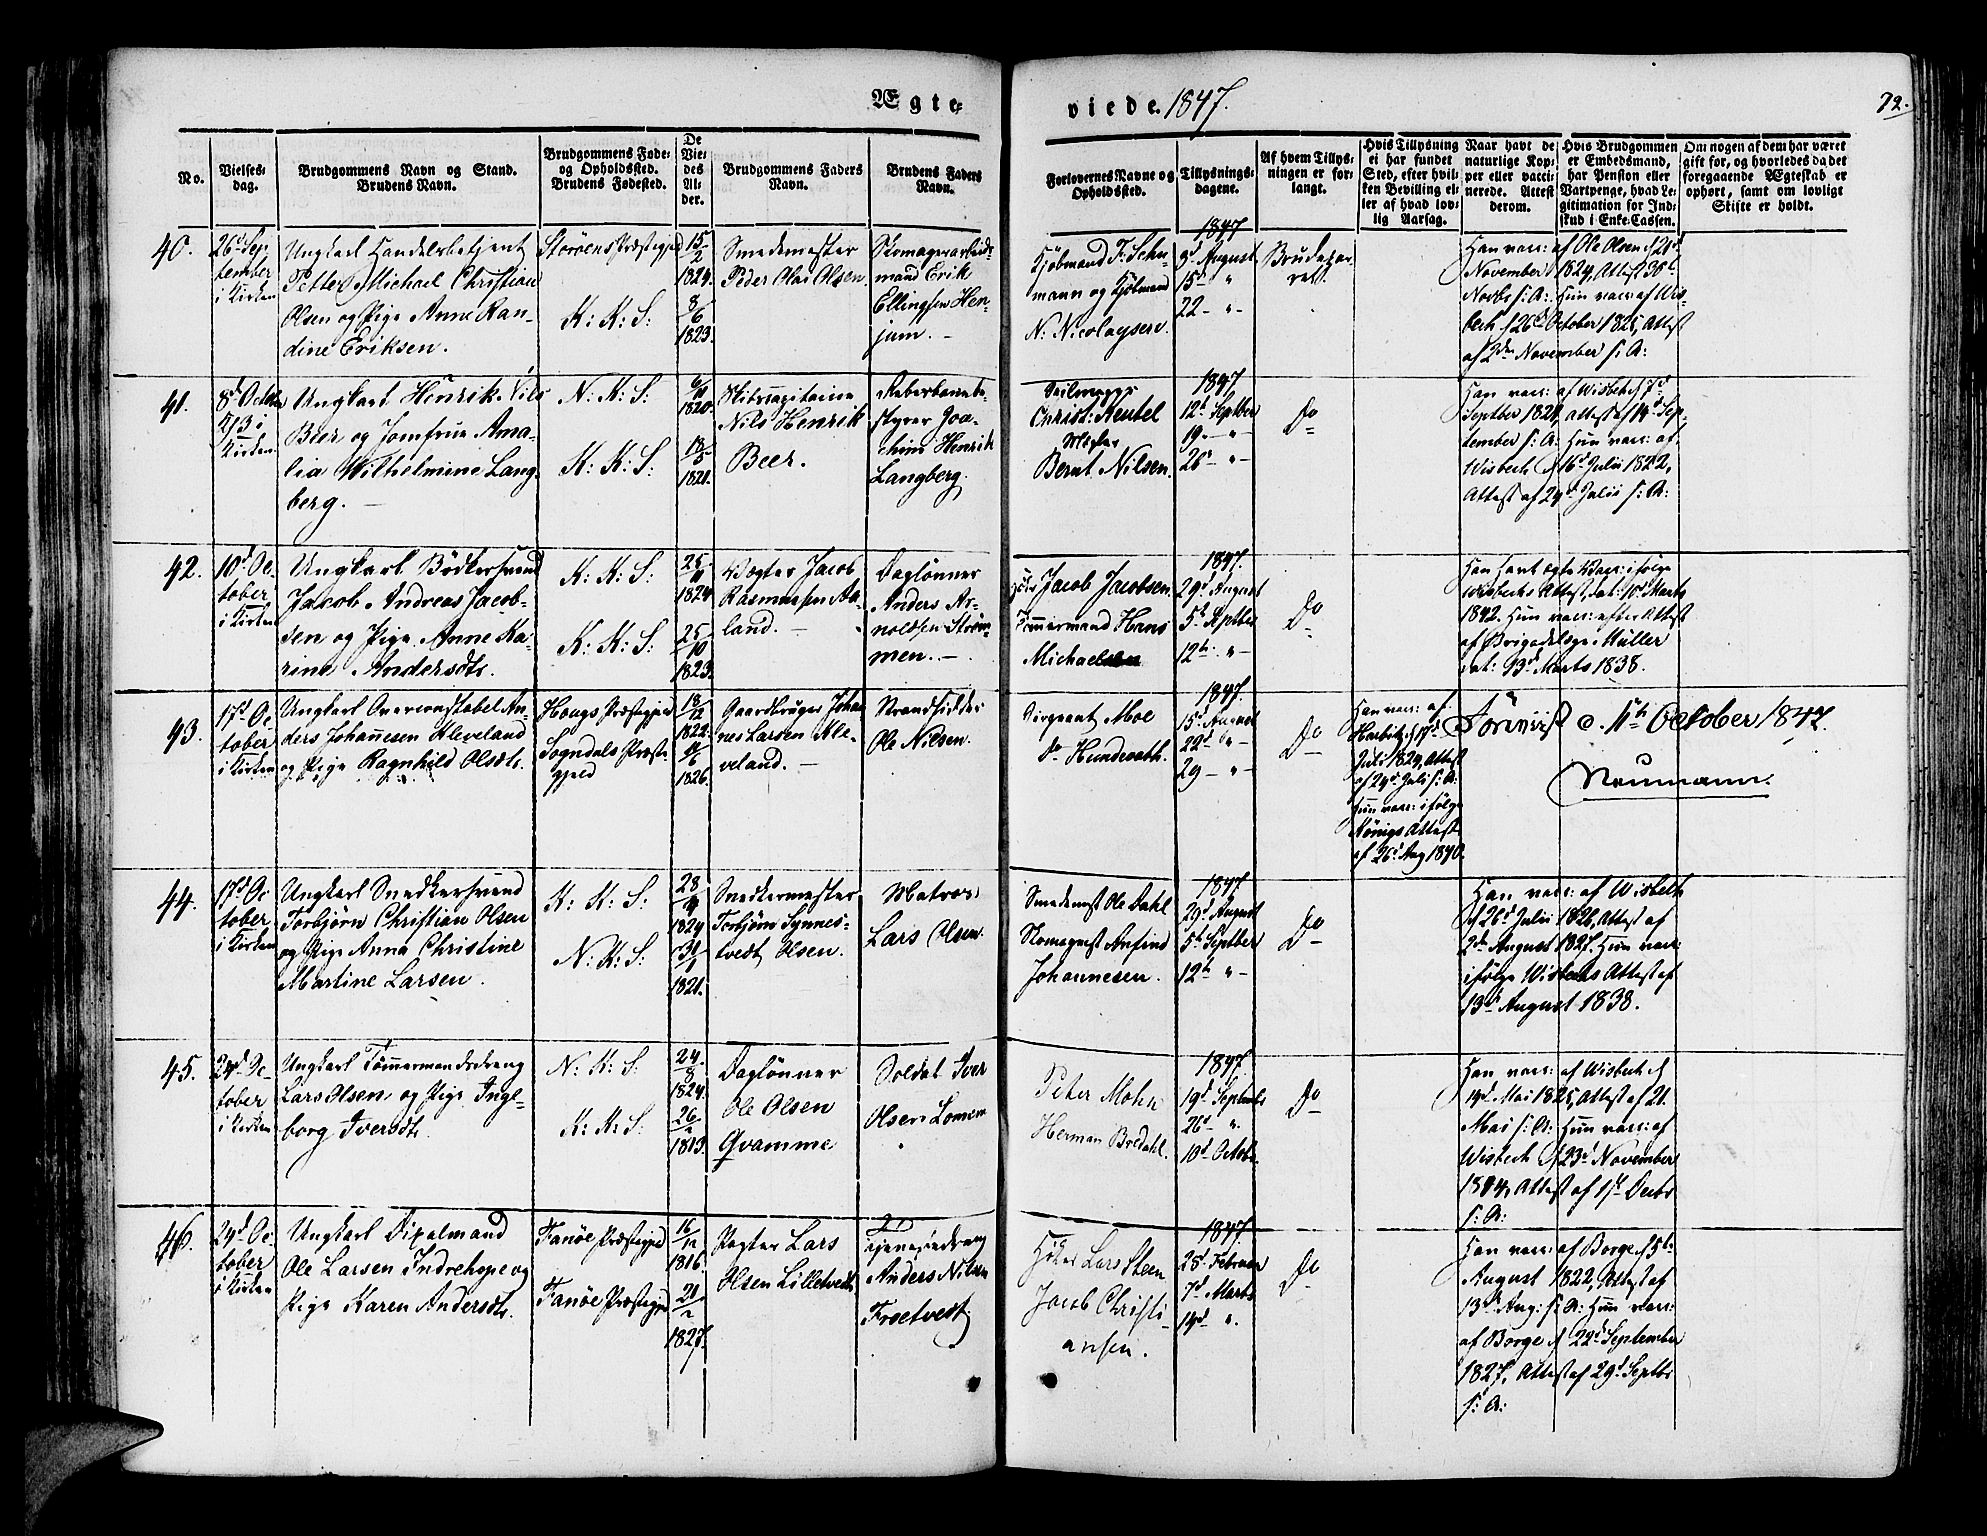 Ægte-
viede. 1847.
72.
No.
Vielses-
dag.
Brudgommens Navn og Stand.
Brudens Navn.
Brudgommens Føde-
og Opholdssted.
Brudens Fødested.
De
Vie-
des
Al-
der.
Brudgommens Faders
Navn.
Brudens Faders
Navn.
Forlovernes Navne og
Opholdssted.
Tillysnings-
dagene.
Af hvem Tillys-
ningen er for-
langt.
Hvis Tillysning
ei har fundet
Sted, efter hvil-
ken Bevilling el-
ler af hvad lov-
lig Aarsag.
Naar havt de
naturlige Kop-
per eller vacci-
nerede. Attest
derom.
Hvis Brudgommen
er Embedsmand,
har Pension eller
Vartpenge, hvad Le-
gitimation for Ind-
skud i Enke-Cassen.
Om nogen af dem har været
gift før, og hvorledes da det
foregaaende Ægteskab er
ophørt, samt om lovligt
Skifte er holdt.
40.
26d Sep-
tember
i Kirken
Ungkarl Handelsbetjent
Petter Michael Christian
Olsen og Pige Anne Ran-
dine Eriksen.
Storøens Præstegjeld
K: K: S:
15/2
1824.
8/6
1823.
Smedemester
Peder Olai Olsen
Skomagerarbeids-
mand Erik
Ellingsen Hen-
jum. -
Kjöbmand F: Schu-
mann og Kjöbmand
N: Nicolaysen.
1847
8d August
15d "
22 - " -
Brudepar-
ret.
Han vacc: af Ole Olsen d 21d
November 1824, Attest 30te
Novbr s: A: Hun vacc: af Wis-
bech d 26d October 1825, Attest
af 2den November s: A:
41.
8d Octbr
1/3 i
Kirken
Ungkarl Henrik Nils
Beer og Jomfrue Ama-
lia Wilhelmine Lang-
berg. -
N: K: S:
K: K: S:
6/11
1820.
18/5
1821.
Skibscapitaine
Nils Henrik
Beer.
Reberbanebe-
styrer Joa-
chim Henrik
Langberg.
Seilmager
Christ: Reutel
Mægler
Bernt Nilsen.
1847
12d Septber
19 - " -
26 - " -
Do
Han vacc: af Wisbech 7d
Septber 1821, Attest af 14d Sep-
tember s: A: Hun vacc: af
Wisbech d 16d Julii 1822,
Attest af 24d Julii s: A:
42.
10d Oc-
tober
i Kirken
Ungkarl Bödkersvend
Jacob Andreas Jacob-
sen og Pige Anne Ka-
rine Andersdtr.
K: K: S:
K: K: S:
25/11
1824
25/10
1823.
Vægter Jacob
Rasmussen Aa-
land. -
Daglönner
Anders Ar-
noldsen Ström-
men. -
Jacob Jacobsen
Tömmermand Hans
Michaelsen
1847.
29d August
5te Septber
12te "
Do
Han havt ægte Vacc: ifölge
Wisbechs Attest, dat: 10de Marts
1842. Hun vacc: efter Attest
af Brigadelæge Müller
dat: 13d Marts 1838.
43.
17d Oc-
tober
i Kirken
Ungkarl Overconstabel An-
ders Johannesen Kleveland
og Pige Ragnhild Olsdtr.
Hougs Præstegjeld
Sogndals Præste-
gjeld
18/12
1822.
14/6
1826.
Gaardbruger Johan-
nes Larsen Kle-
veland. -
Strandsidder
Ole Nilsen.
Sergeant Moe
do Hundevath.
1847.
15d August
22d " -
29 - " -
Do
Han vacc: af
Harbitz d 17d
Juli 1824, Attest
af 24d Juli s: A:
Hun vacc: ifölge
Königs Attest
af 26d Aug 1840.
Foreviist d. 11te October 1847.
Neumann.
44.
17d Oc-
tober
i Kirken
Ungkarl Snedkersvend
Torbjörn Christian Olsen
og Pige Anna Christine
Martine Larsen.
K: K: S:
N: K: S:
28/11
1824
30/1
1821.
Snedkermester
Torbjörn Synnes-
tvedt Olsen.
Matros
Lars Olsen.
Smedemst Ole Dahl
Skomagmst Anfind
Johannesen.
1847
29d August
5te Septber
12te " -
Do
Han vacc: af Wisbech
d 26d Julii 1826, Attest af
2d August 1827. Hun vacc:
ifölge Wisbechs Attest af
13d August 1838.
45.
24d Oc-
tober
i Kirken
Ungkarl Tömmermandsdreng
Lars Olsen og Pige Inge-
borg Iversdtr.
N: K: S:
K: K: S:
24/8
1824.
26/2
1813.
Daglönner
Ole Olsen
Qvamme
Soldat Iver
Olsen Lomen
Peter Mohn
Herman Bredahl.
1847.
19d Septembr
26d "
10d Octobr.
Do
Han vacc: af Wisbech d
14d Mai 1825, Attest af 21
Mai s: A: Hun vacc: af
Wisbech d 23d November
1814, Attest af 1ste Decbr
s: A:
46.
24d Oc-
tober
i Kirken
Ungkarl Dixelmand
Ole Larsen Indrehope og
Pige Karen Andersdtr.
Fanöe Præstegjeld
Fanöe Præstegjeld
16/12
1816.
21/2
1827.
Pagter Lars
Olsen Lilletvedt
Tjenestedreng
Anders Nilsen
Troetvedt
Höker Lars Steen
Jacob Christi-
ansen.
1847.
28d Februar
7d Marts
14d "
Do
Han vacc: af Borge d 5te
August 1822, Attest af
13d Aug: s: A: Hun vacc:
af Borge d 22d September
1827, Attest af 29d Septbr
s: A: